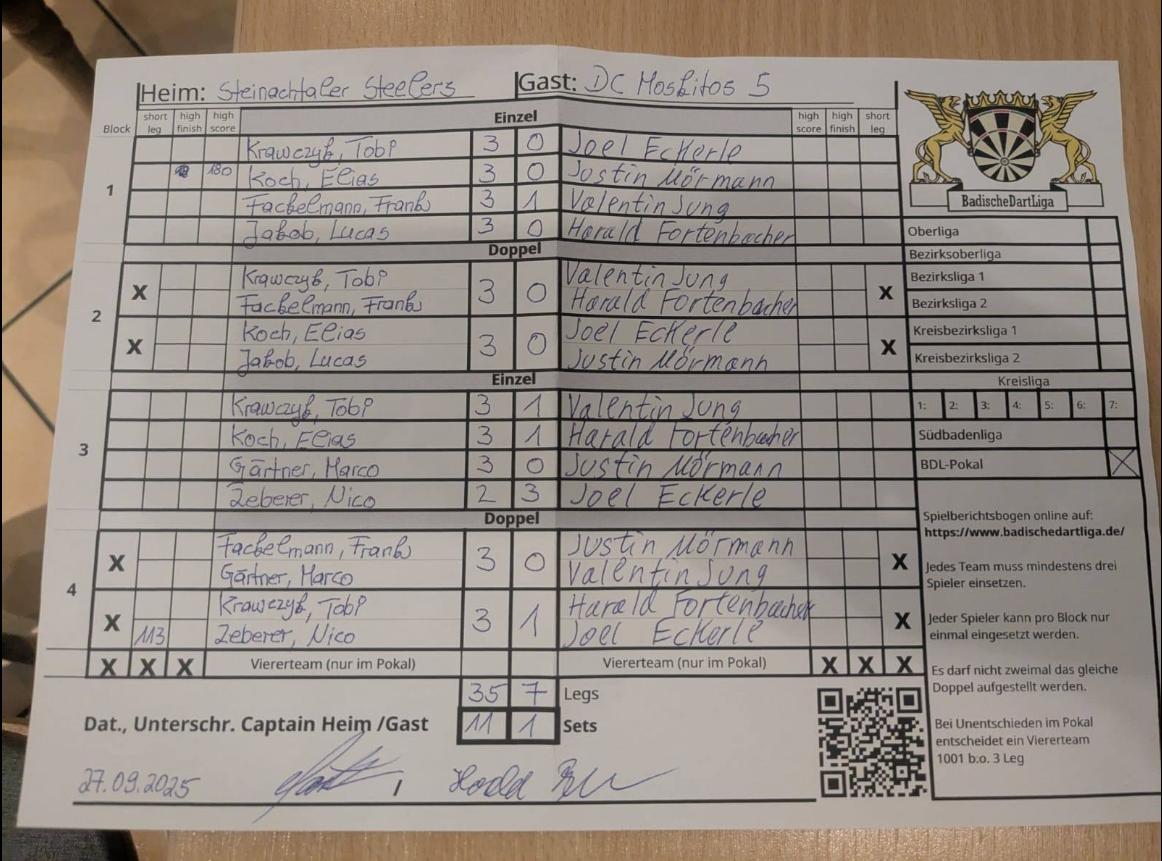 Heim: Steinachtaler Steelers Gast: DC Moskitos 5
Block short leg high finish high score Einzel high score high finish short leg
1
Krawczyk, Tobi 3 0 Joel Eckerle
180 Koch, Elias 3 0 Justin Mörmann
Fackelmann, Frank 3 1 Valentin Jung
Jakob, Lucas 3 0 Harald Fortenbacher
Doppel
2
X Krawczyk, Tobi 3 0 Valentin Jung X
Fackelmann, Frank Harald Fortenbacher
X Koch, Elias 3 0 Joel Eckerle X
Jakob, Lucas Justin Mörmann
Einzel
3
Krawczyk, Tobi 3 1 Valentin Jung
Koch, Elias 3 1 Harald Fortenbacher
Gärtner, Marco 3 0 Justin Mörmann
Zeberer, Nico 2 3 Joel Eckerle
Doppel
4
X Fackelmann, Frank 3 0 Justin Mörmann X
Gärtner, Marco Valentin Jung
X Krawczyk, Tobi 3 1 Harald Fortenbacher X
113 Zeberer, Nico Joel Eckerle
X X X Viererteam (nur im Pokal) Viererteam (nur im Pokal) X X X
35 7 Legs
Dat., Unterschr. Captain Heim /Gast 11 1 Sets
27.09.2025 /
BadischeDartLiga
Oberliga
Bezirksoberliga
Bezirksliga 1
Bezirksliga 2
Kreisbezirksliga 1
Kreisbezirksliga 2
Kreisliga
1: 2: 3: 4: 5: 6: 7:
Südbadenliga
BDL-Pokal X
Spielberichtsbogen online auf:
https://www.badischedartliga.de/
Jedes Team muss mindestens drei
Spieler einsetzen.
Jeder Spieler kann pro Block nur
einmal eingesetzt werden.
Es darf nicht zweimal das gleiche
Doppel aufgestellt werden.
Bei Unentschieden im Pokal
entscheidet ein Viererteam
1001 b.o. 3 Leg